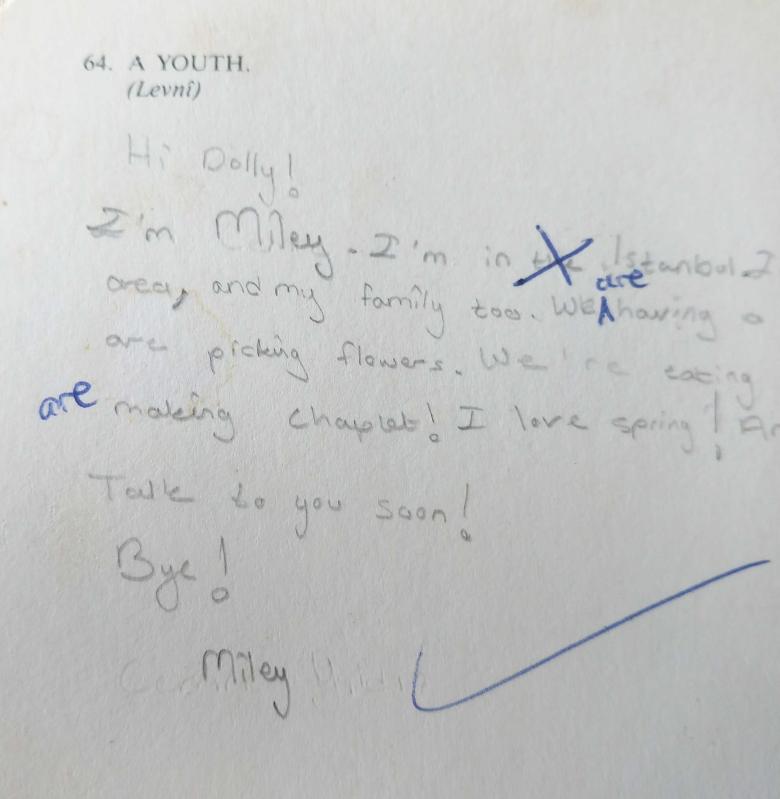 64. A YOUTH.
(Levnî)
Hi Dolly!
I'm Miley. I'm in the Istanbul I
are
area, and my family too. We having a
are picking flowers. We're eating
are making chaplet! I love spring!
Talk to you soon!
Bye!
Miley